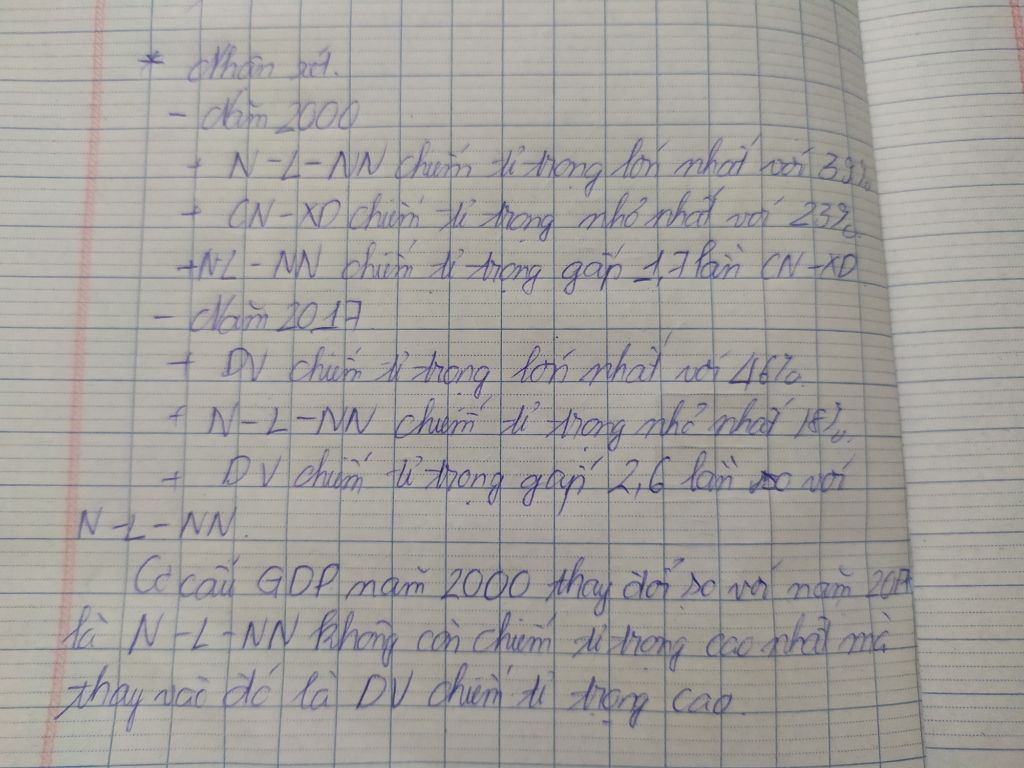 * Nhận xét.
- Năm 2000
+ N-L-NN chiếm tỉ trọng lớn nhất với 39%
+ CN-XD chiếm tỉ trọng nhỏ nhất với 23%.
+ N-L-NN chiếm tỉ trọng gấp 1,7 lần CN-XD
- Năm 2017
+ DV chiếm tỉ trọng lớn nhất với 46%.
+ N-L-NN chiếm tỉ trọng nhỏ nhất 18%.
+ DV chiếm tỉ trọng gấp 2,6 lần so với
N-L-NN.
Cơ cấu GDP năm 2000 thay đổi so với năm 2017
là N-L-NN không còn chiếm tỉ trọng cao nhất mà
thay vào đó là DV chiếm tỉ trọng cao.